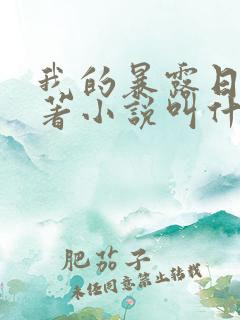 我的暴露日
著小说叫什
肥茄子
未经同意禁止转载